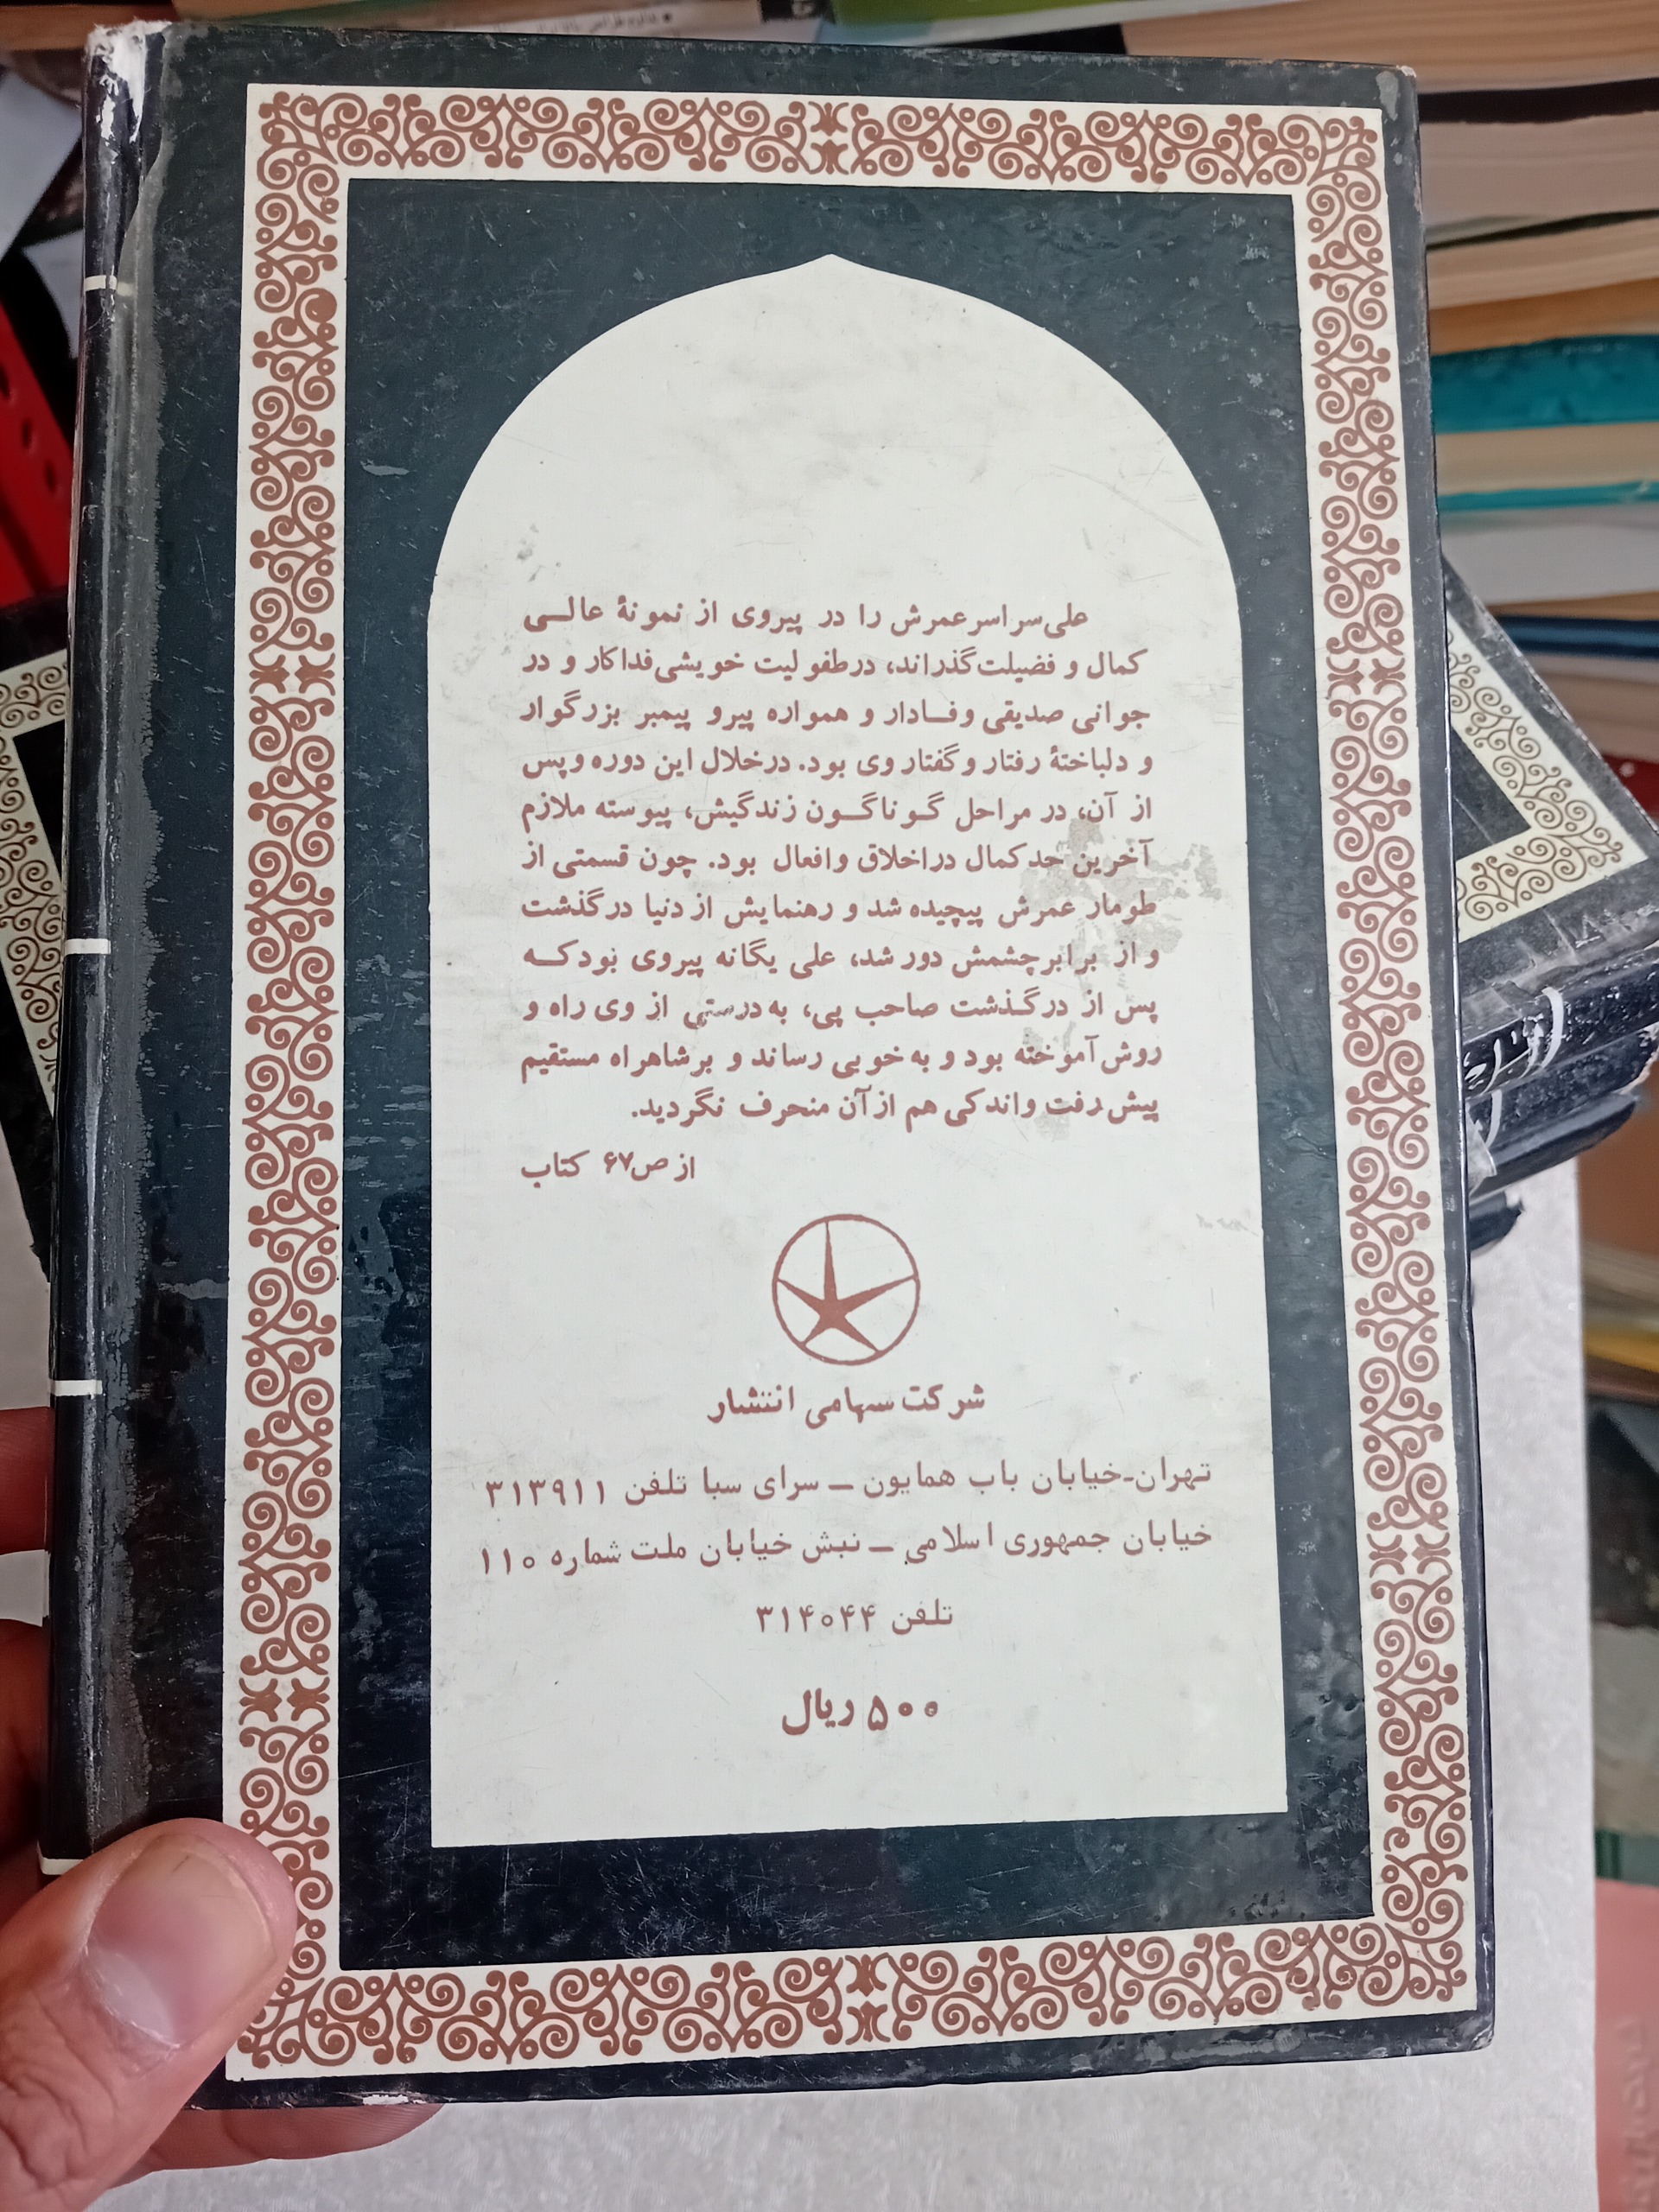 علی سراسر عمرش را در پیروی از نمونهٔ عالـــی
کمال و فضیلت گذراند، در طفولیت خویشی فداکار و در
جوانی صدیقی وفـــادار و همواره پیرو پیمبر بزرگوار
و دلباختهٔ رفتار و گفتار وی بود. در خلال این دوره و پس
از آن، در مراحل گـوناگـون زندگیش، پیوسته ملازم
آخرین حد کمال در اخلاق و افعال بود. چون قسمتی از
طومار عمرش پیچیده شد و رهنمایش از دنیا درگذشت
و از برابر چشمش دور شد، علی یگانه پیروی بود کـــه
پس از درگـذشت صاحب پی، به درستی از وی راه و
روش آموخته بود و به خوبی رساند و بر شاهراه مستقیم
پیش رفت و اندکی هم از آن منحرف نگردید.
از ص ۶۷ کتاب
شرکت سهامی انتشار
تهران-خیابان باب همایون – سرای سبا تلفن ۳۱۳۹۱۱
خیابان جمهوری اسلامی – نبش خیابان ملت شماره ۱۱۰
تلفن ۳۱۴۰۴۴
۵۰۰ ریال